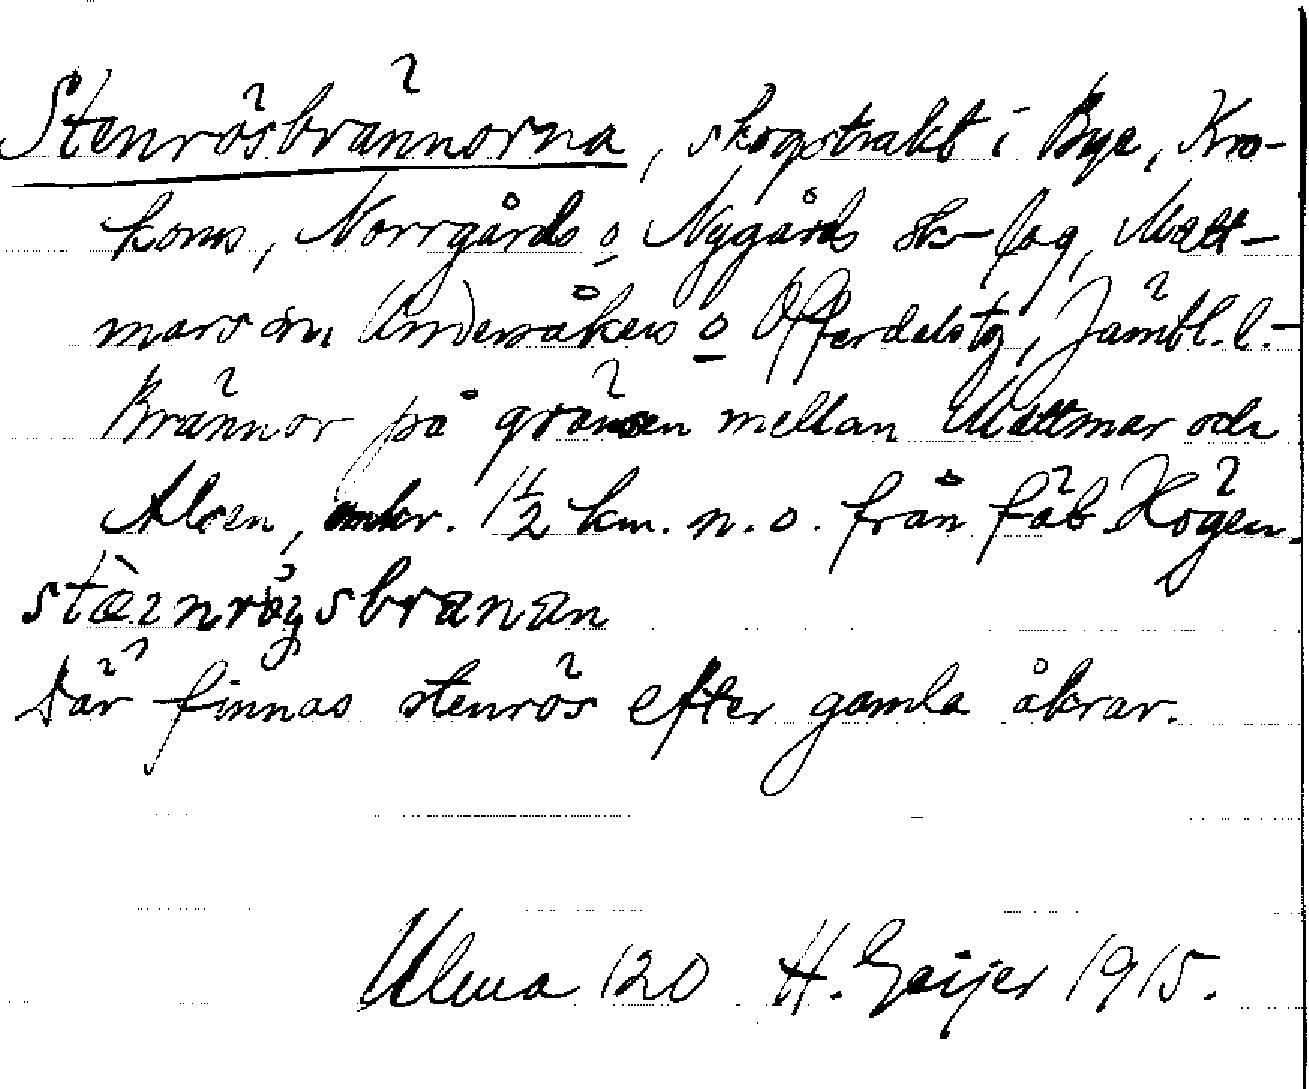 Stenrösbrännorna, skogstrakt i Bye, Kro-
koms, Norrgårds o Nygårds sk-lag, Matt-
mars sn, Undersåkers o Offerdals tg, Jämtl. l.-
Brännor på gränsen mellan Mattmar och
Alsen, omkr. 1 1/2 km. n.o. från fäb. Högen.
Där finnas stenrös efter gamla åkrar.
Ulma 120 H. Geijer 1915.